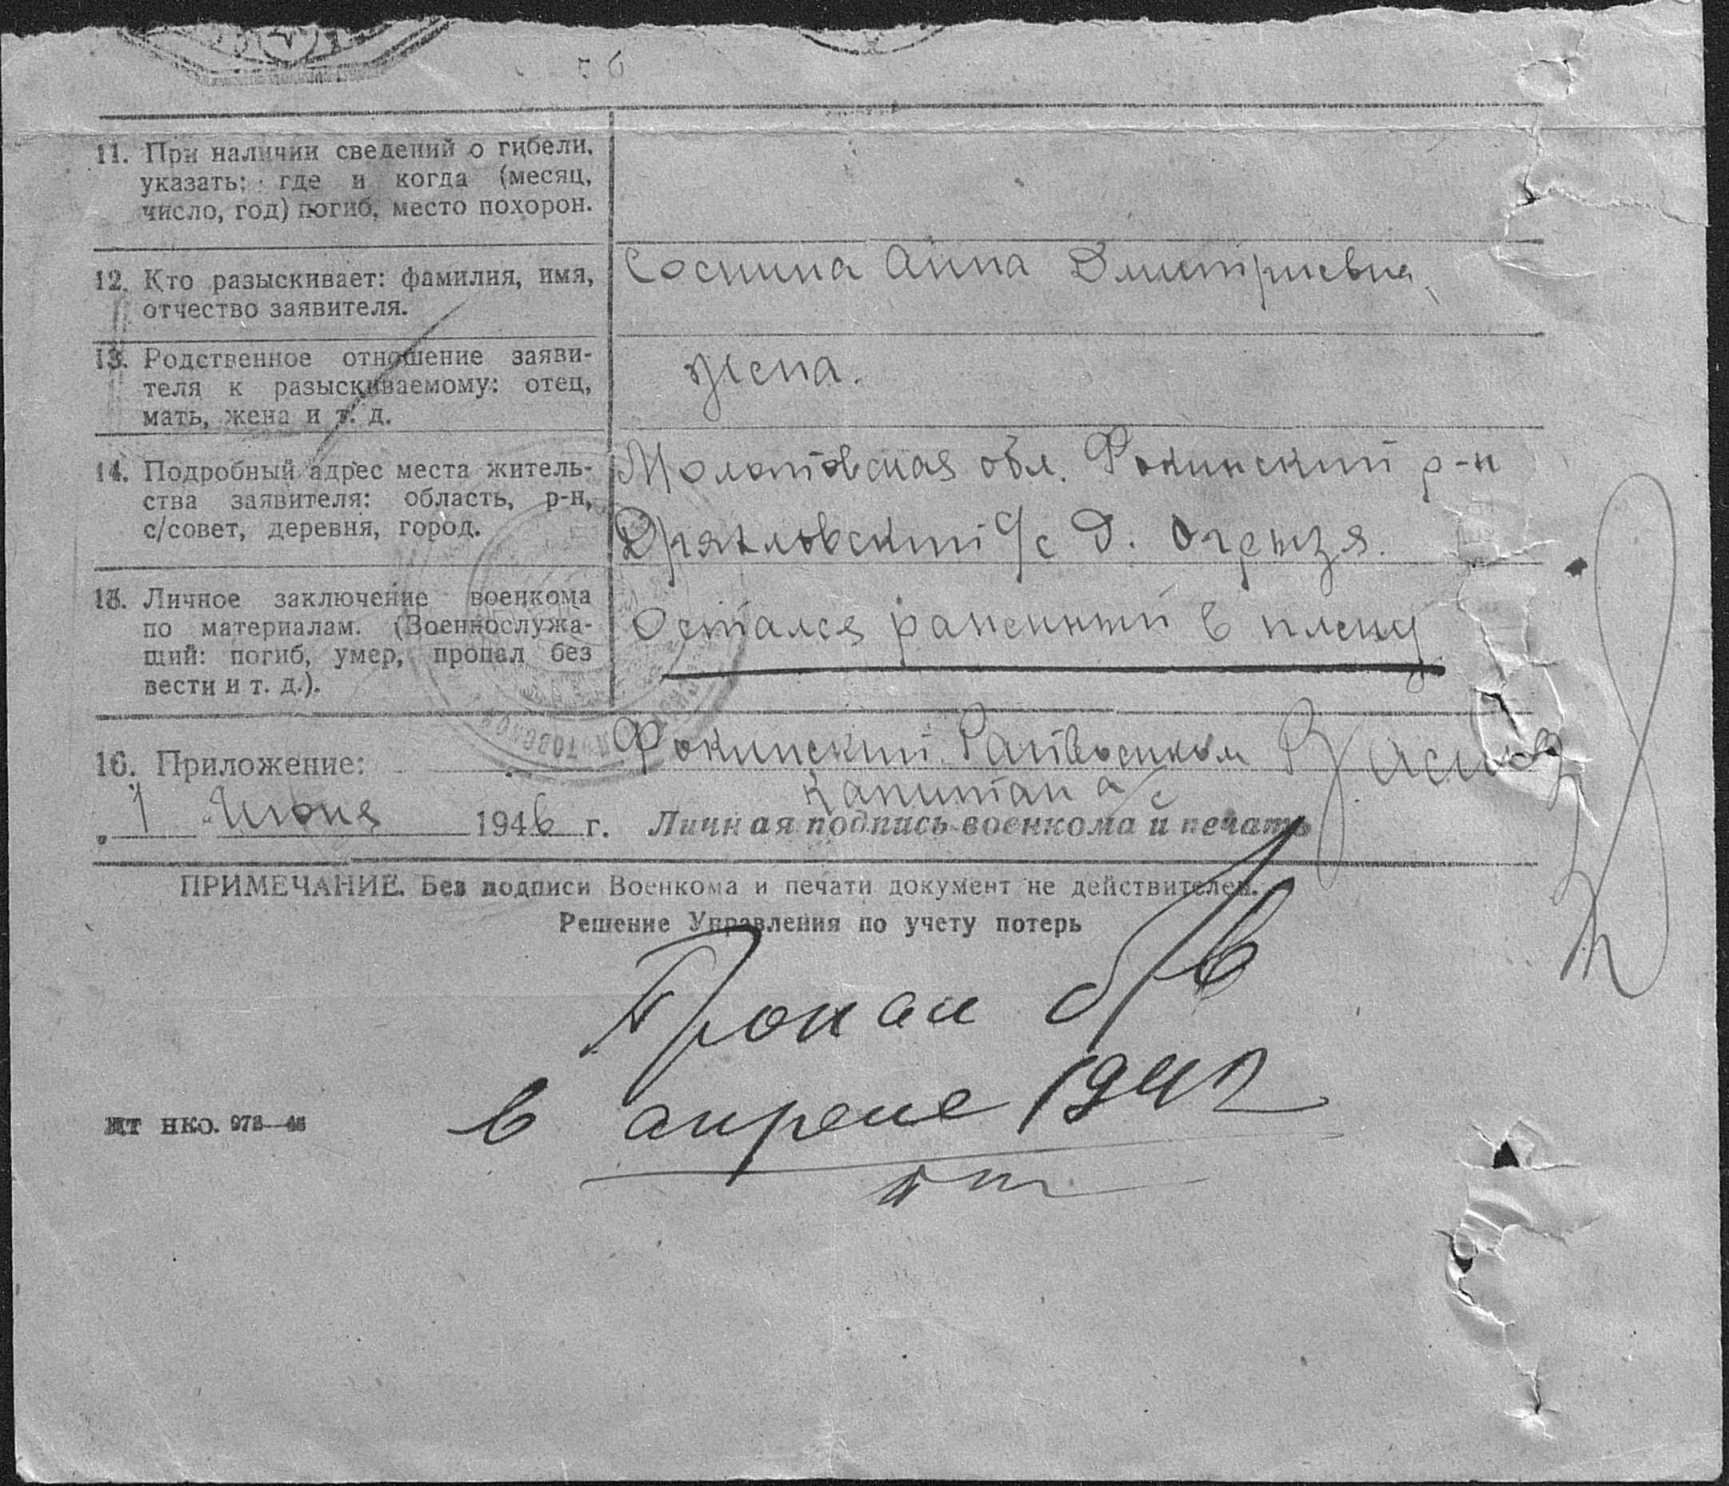 11. При наличии сведений о гибели,
указать: где и когда (месяц,
число, год) погиб, место похорон.
12. Кто разыскивает: фамилия, имя,
отчество заявителя.
Соснина Анна Дмитриевна
13. Родственное отношение заяви-
теля к разыскиваемому: отец,
мать, жена и т. д.
жена.
14. Подробный адрес места житель-
ства заявителя: область, р-н,
с/совет, деревня, город.
Молотовская обл. Фокинский р-н
с/с д.
15. Личное заключение военкома
по материалам. (Военнослужа-
щий: погиб, умер, пропал без
вести и т. д.).
Остался раненный в плену
16. Приложение:
Фокинский Райвоенком
Капитан а/с
1 Июня 1946 г. Личная подпись военкома и печать
ПРИМЕЧАНИЕ. Без подписи Военкома и печати документ не действителен.
Решение Управления по учету потерь
Пропал б/в
в апреле 1942
НКО.